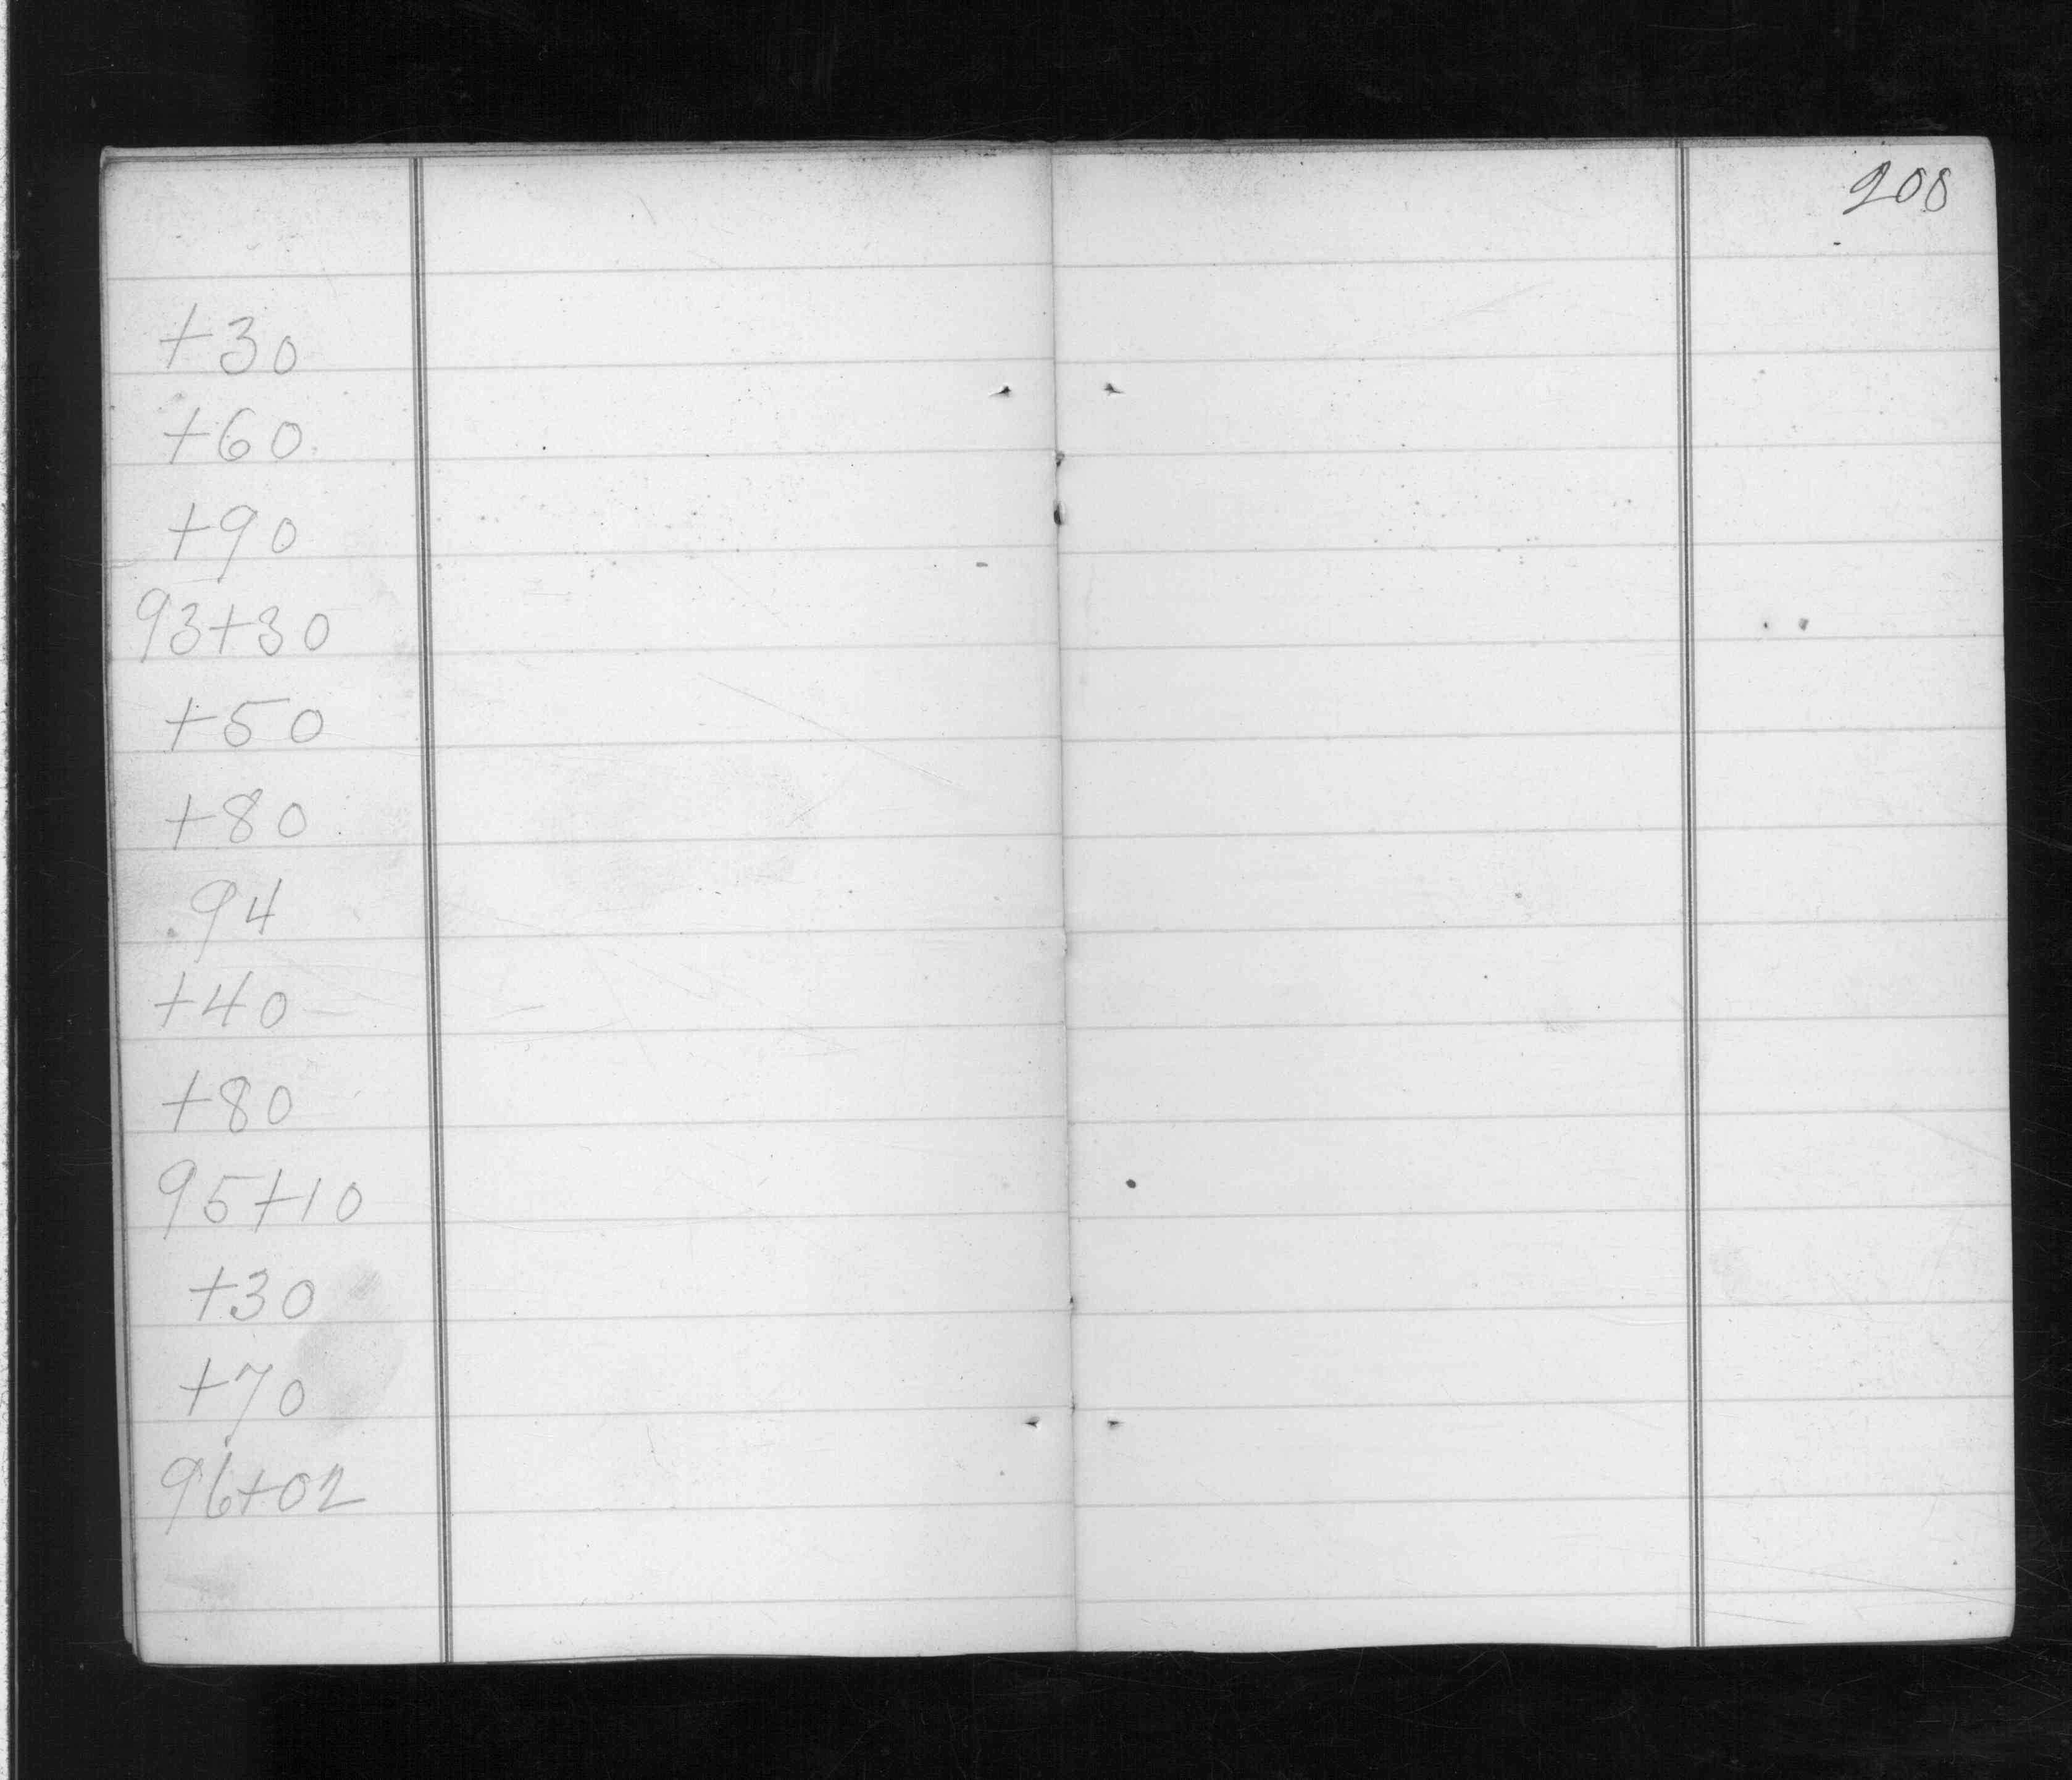 208
+30
+60
+90
93+30
+50
+80
94
+40
+80
95+10
+30
+70
96+02